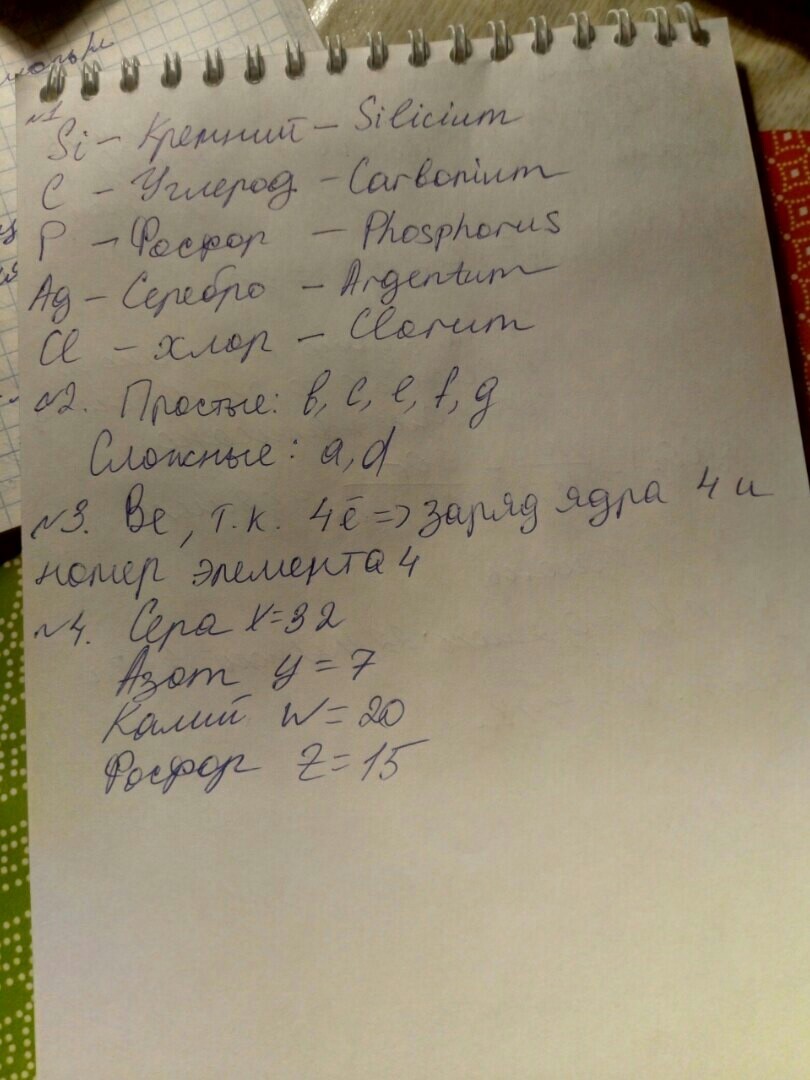 №1
Si – Кремний – Silicium
C – Углерод – Carbonium
P – Фосфор – Phosphorus
Ag – Серебро – Argentum
Cl – хлор – Clorum
№2. Простые: b, c, e, f, g
Сложные: a, d
№3. Be, т.к. 4ē => заряд ядра 4 и
номер элемента 4
№4. Сера X=32
Азот y=7
Калий W=20
Фосфор Z=15